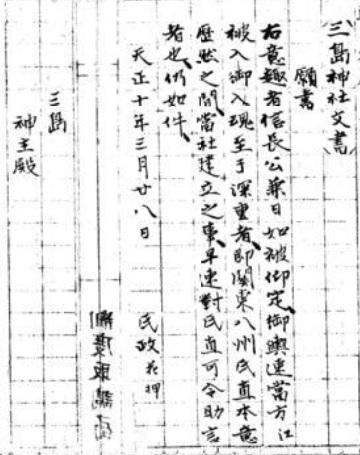 三島神社文書
願書
右意趣者信長公兼日如被仰定御輿速當方江
被入御入魂至于深重者即関東八州氏直本意
歴然之間當社建立之事早速對氏直可令助言
者也仍如件
天正十年三月廿八日
氏政花押
三島
神主殿